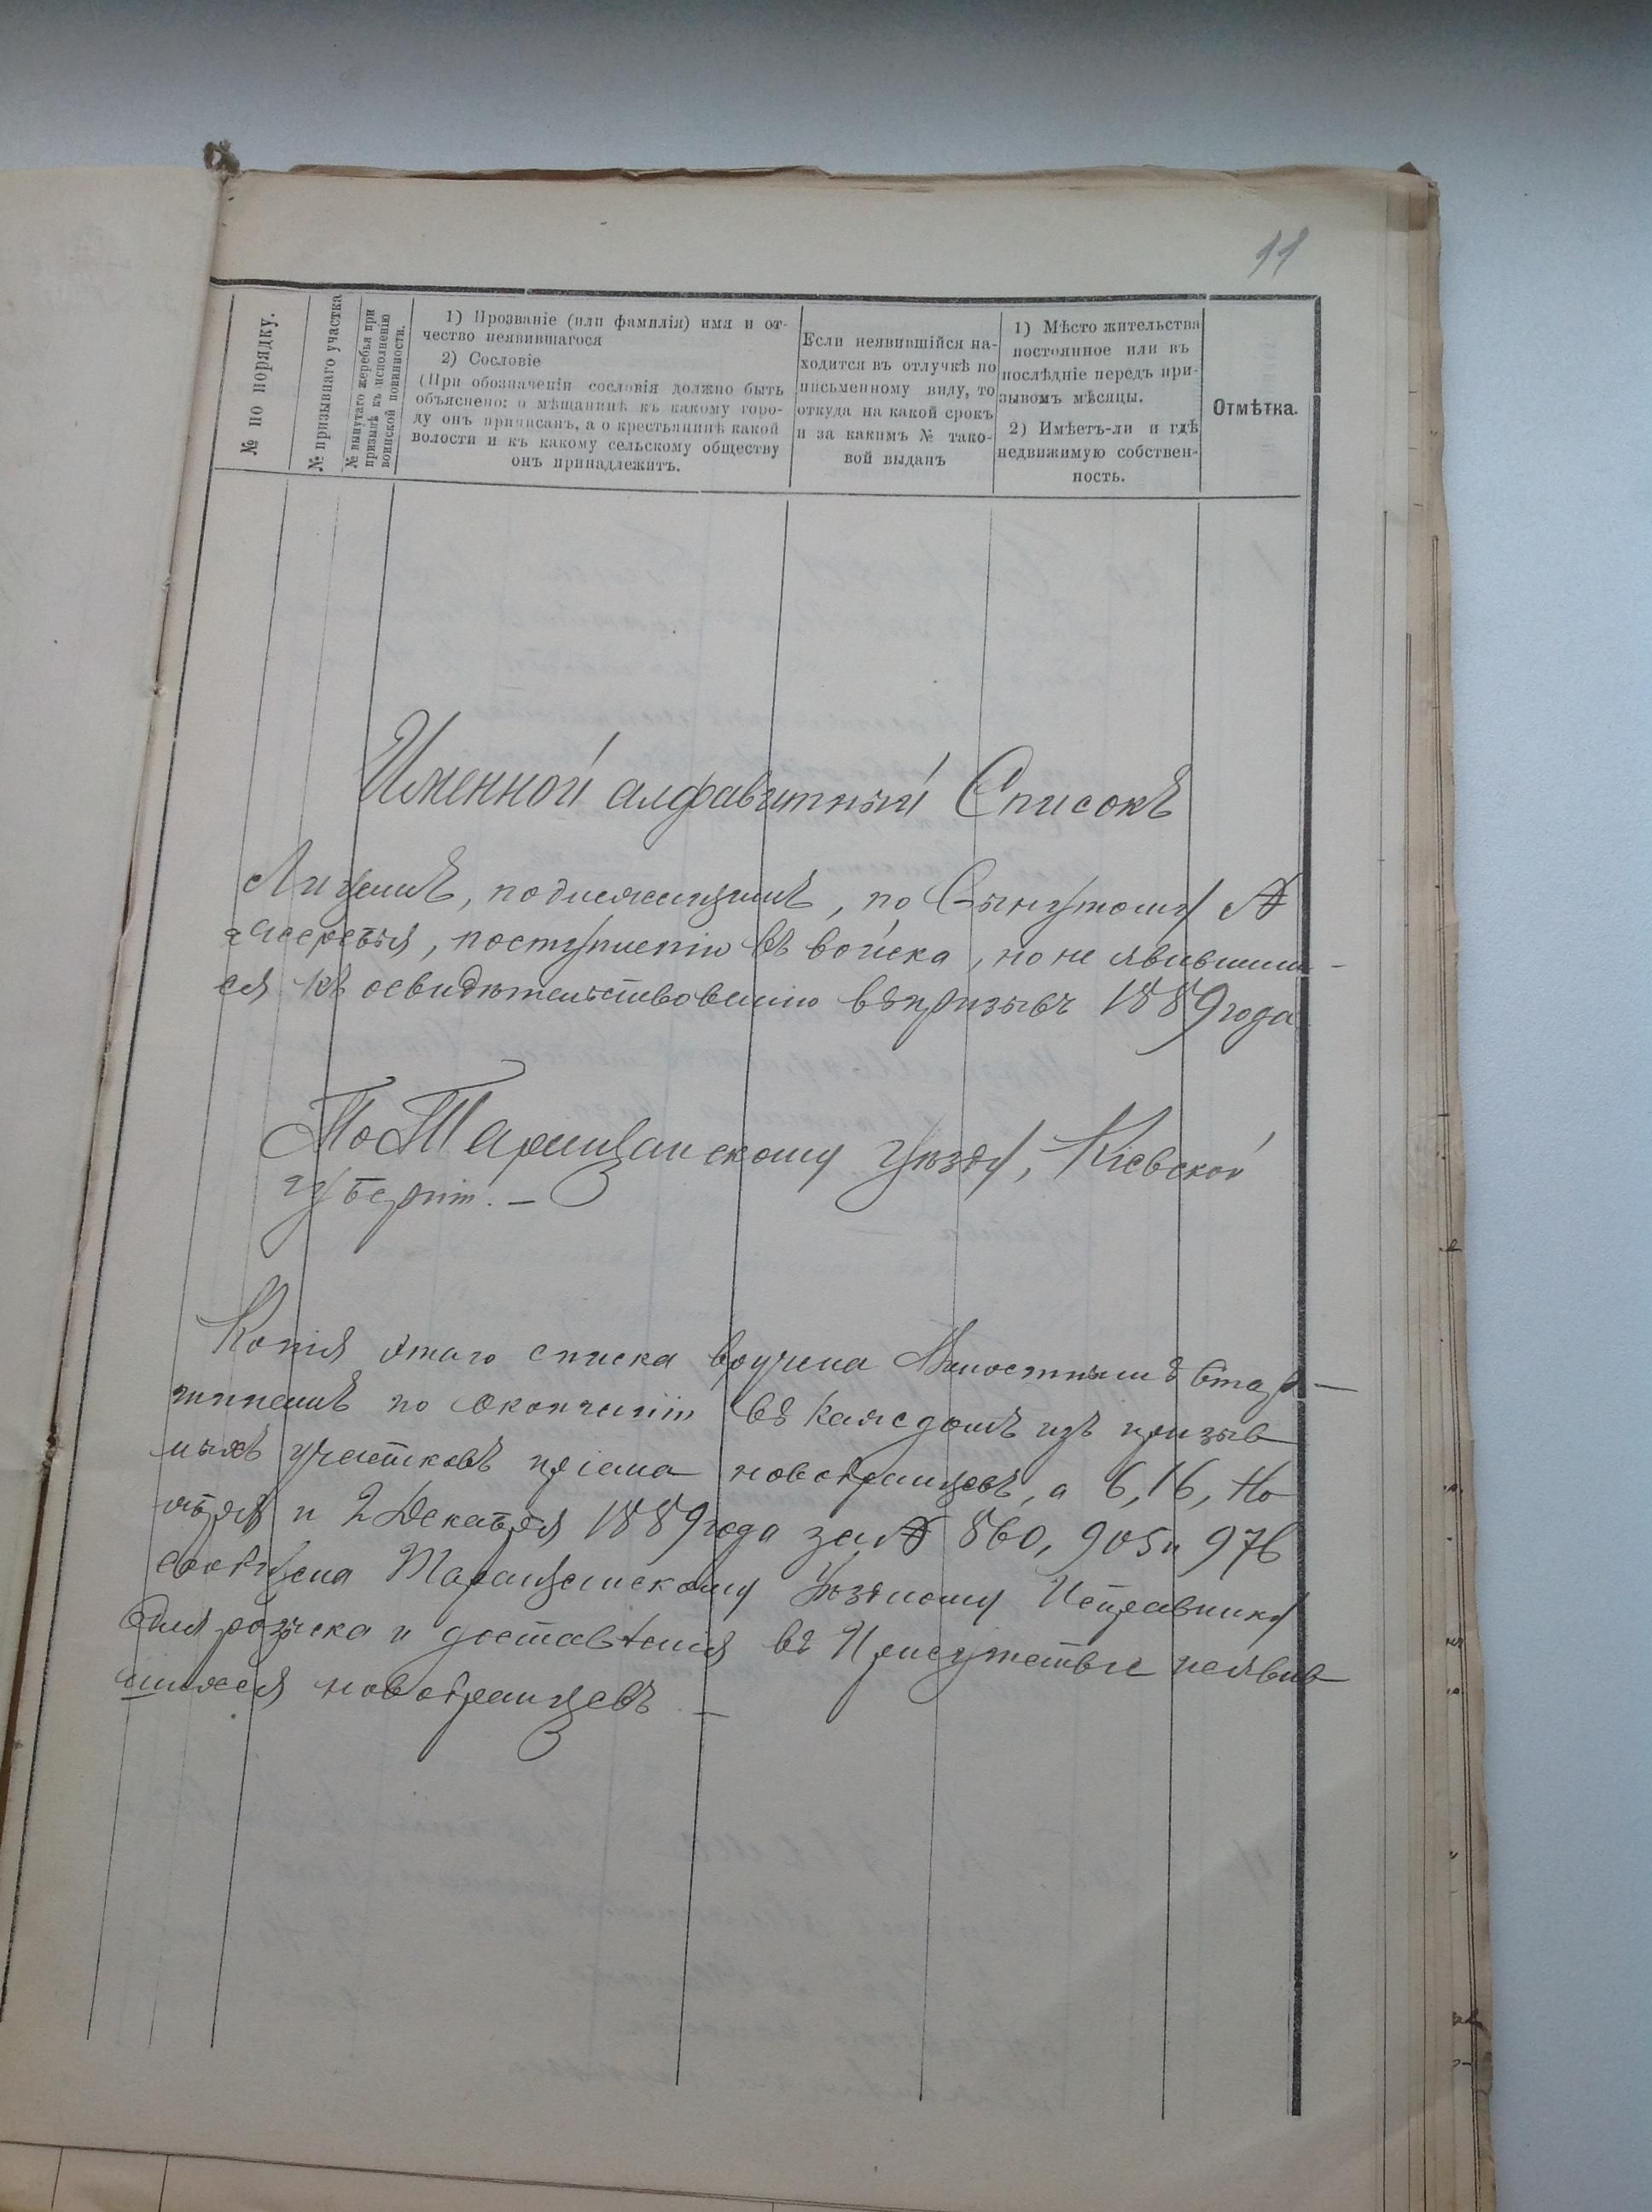 11
№ по порядку.
№ призывнаго участка
№ вынутаго жеребья при
призывѣ къ исполненію
воинской повинности.
1) Прозваніе (или фамилія) имя и от-
чество неявившагося
2) Сословіе
(При обозначеніи сословія должно быть
объяснено: о мѣщанинѣ къ какому горо-
ду онъ приписанъ, а о крестьянинѣ какой
волости и къ какому сельскому обществу
онъ принадлежитъ.
Если неявившійся на-
ходится въ отлучкѣ по
письменному виду, то
откуда на какой срокъ
и за какимъ № тако-
вой выданъ
1) Мѣсто жительства
постоянное или въ
послѣдніе передъ при-
зывомъ мѣсяцы.
2) Имѣетъ-ли и гдѣ
недвижимую собствен-
ность.
Отмѣтка.
Именной алфавитный Списокъ
Лицамъ, подлежащимъ, по вынутому №
жеребья, поступленію въ войска, но не явившим-
ся къ освидѣтельствованію въ призывъ 1889 года
По Таращанскому уѣзду, Кіевской
губерніи. –
Копія этаго списка вручена Волостнымъ Стар-
шинамъ по окончаніи въ каждомъ изъ призыв
ныхъ участковъ пріема новобранцевъ, а 6, 16, Но
ября и 2 Декабря 1889 года за № 860, 905 и 976
сообщена Таращанскому Уѣздному Исправнику
для розыска и доставленія въ Присутствіе неявив
шихся новобранцевъ –